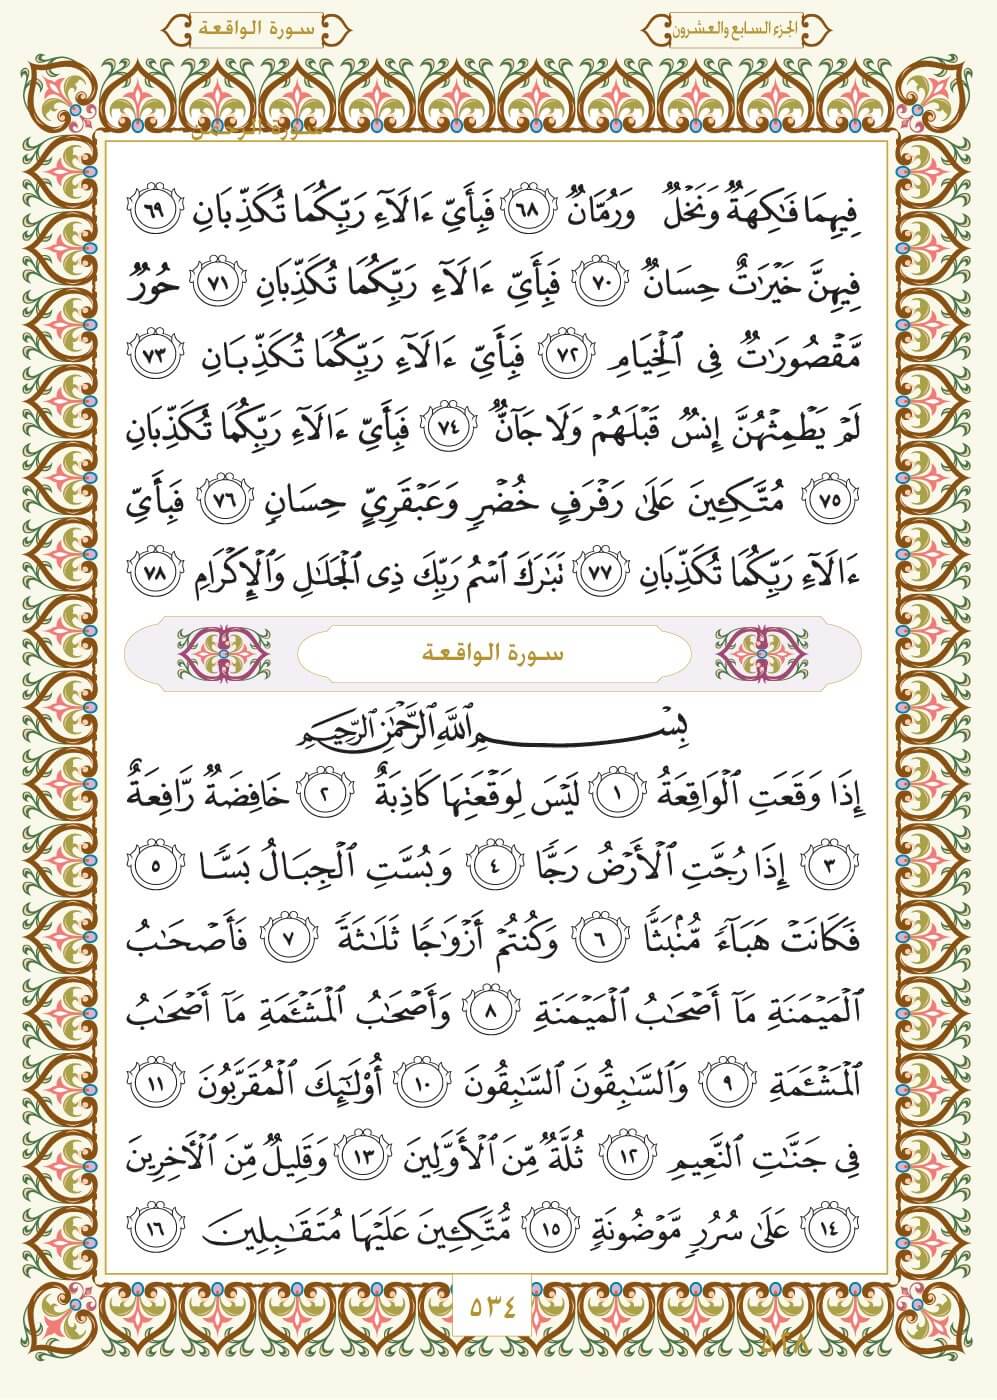 الجزء السابع والعشرون
سورة الواقعة
سورة الرحمن
فِيهِمَا فَٰكِهَةٌ وَنَخْلٌ وَرُمَّانٌ ٦٨ فَبِأَيِّ ءَالَآءِ رَبِّكُمَا تُكَذِّبَانِ ٦٩
فِيهِنَّ خَيْرَٰتٌ حِسَانٌ ٧٠ فَبِأَيِّ ءَالَآءِ رَبِّكُمَا تُكَذِّبَانِ ٧١ حُورٌ
مَّقْصُورَٰتٌ فِى ٱلْخِيَامِ ٧٢ فَبِأَيِّ ءَالَآءِ رَبِّكُمَا تُكَذِّبَانِ ٧٣
لَمْ يَطْمِثْهُنَّ إِنسٌ قَبْلَهُمْ وَلَا جَآنٌّ ٧٤ فَبِأَيِّ ءَالَآءِ رَبِّكُمَا تُكَذِّبَانِ
٧٥ مُتَّكِـِٔينَ عَلَىٰ رَفْرَفٍ خُضْرٍ وَعَبْقَرِىٍّ حِسَانٍ ٧٦ فَبِأَيِّ
ءَالَآءِ رَبِّكُمَا تُكَذِّبَانِ ٧٧ تَبَٰرَكَ ٱسْمُ رَبِّكَ ذِى ٱلْجَلَٰلِ وَٱلْإِكْرَامِ ٧٨
سورة الواقعة
بِسْمِ ٱللَّهِ ٱلرَّحْمَٰنِ ٱلرَّحِيمِ
إِذَا وَقَعَتِ ٱلْوَاقِعَةُ ١ لَيْسَ لِوَقْعَتِهَا كَاذِبَةٌ ٢ خَافِضَةٌ رَّافِعَةٌ
٣ إِذَا رُجَّتِ ٱلْأَرْضُ رَجًّا ٤ وَبُسَّتِ ٱلْجِبَالُ بَسًّا ٥
فَكَانَتْ هَبَآءً مُّنۢبَثًّا ٦ وَكُنتُمْ أَزْوَٰجًا ثَلَٰثَةً ٧ فَأَصْحَٰبُ
ٱلْمَيْمَنَةِ مَآ أَصْحَٰبُ ٱلْمَيْمَنَةِ ٨ وَأَصْحَٰبُ ٱلْمَشْـَٔمَةِ مَآ أَصْحَٰبُ
ٱلْمَشْـَٔمَةِ ٩ وَٱلسَّٰبِقُونَ ٱلسَّٰبِقُونَ ١٠ أُو۟لَٰٓئِكَ ٱلْمُقَرَّبُونَ ١١
فِى جَنَّٰتِ ٱلنَّعِيمِ ١٢ ثُلَّةٌ مِّنَ ٱلْأَوَّلِينَ ١٣ وَقَلِيلٌ مِّنَ ٱلْءَاخِرِينَ
١٤ عَلَىٰ سُرُرٍ مَّوْضُونَةٍ ١٥ مُّتَّكِـِٔينَ عَلَيْهَا مُتَقَٰبِلِينَ ١٦
٥٣٤